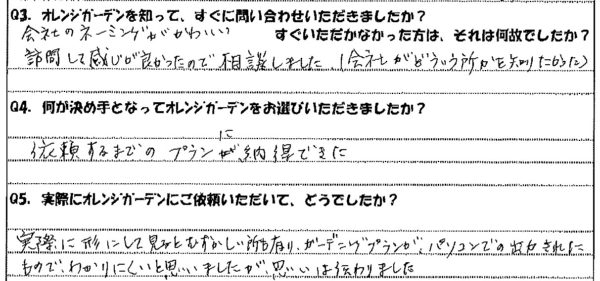 Q3. オレンジガーデンを知って、すぐに問い合わせいただきましたか？
会社のネーミングがかわいい
すぐいただかなかった方は、それは何故でしたか？
訪問して感じが良かったので相談しました。(会社がどういう所かを知りたかった)
Q4. 何が決め手となってオレンジガーデンをお選びいただきましたか？
に
依頼するまでの プラン 納得できた
Q5. 実際にオレンジガーデンにご依頼いただいて、どうでしたか？
実際に形にして見るとむずかしい所も有り、ガーデニングプランが、パソコンでの出力された
もので、わかりにくいと思いましたが、思いは伝わりました